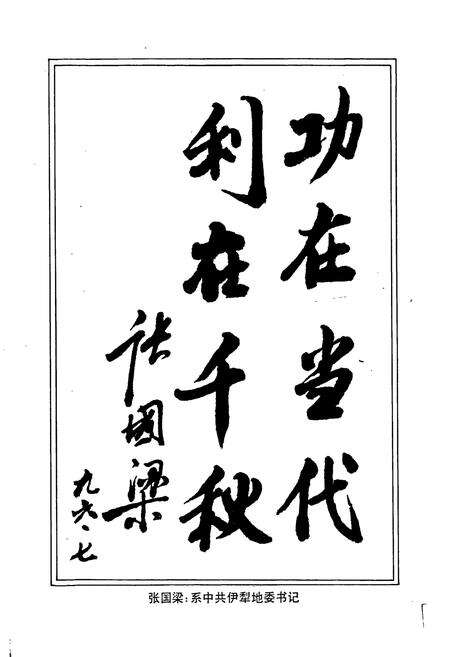 功在当代
利在千秋
张国梁
九六、七
张国梁：系中共伊犁地委书记